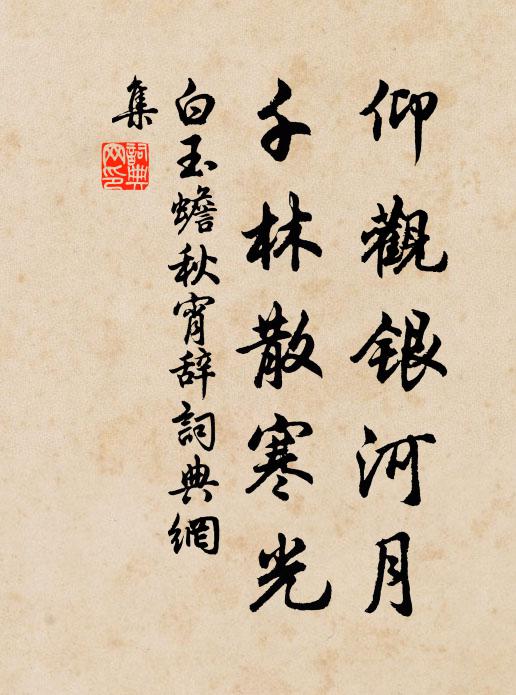 仰觀銀河月
千林散寒光
白玉蟾秋宵辭詞典網
集
詞典
網印